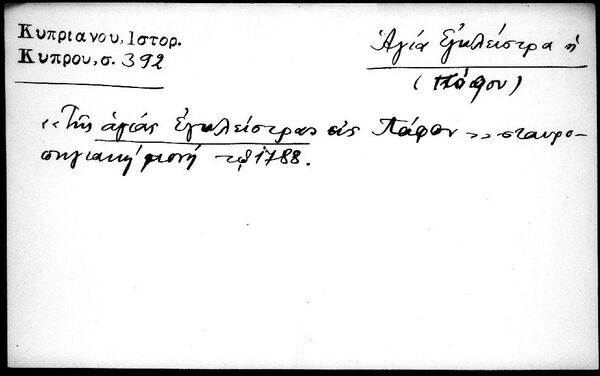 Κυπριανου, Ιστορ.
Κυπρου, σ. 392
Ἁγία Ἐγκλείστρα ἡ
(Πάφου)
«Τῆς ἁγίας Ἐγκλείστρας εἰς Πάφον» σταυρο-
πηγιακὴ μονὴ τῷ 1788.